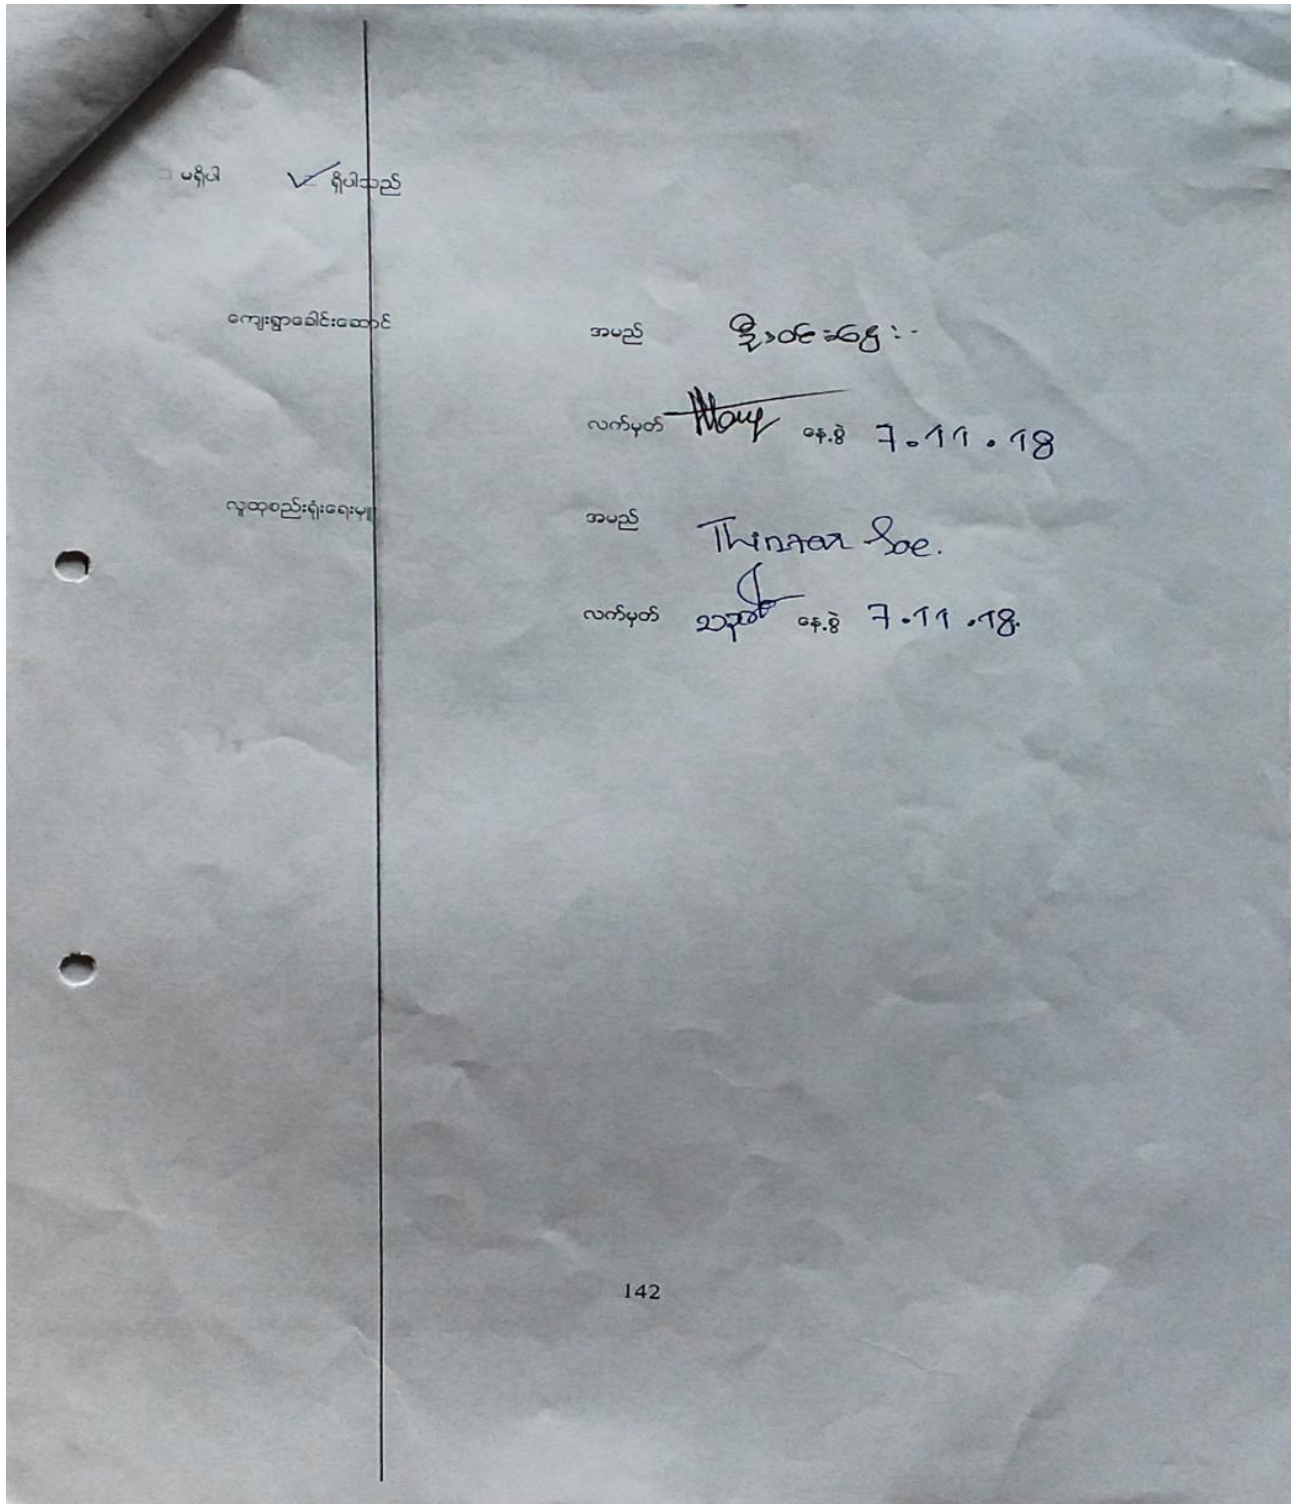 မရှိပါ ရှိပါသည်
ကျေးရွာခေါင်းဆောင် အမည် ဦးဝင်းဆွေ
လက်မှတ် နေ့စွဲ 7.11.18
လူထုစည်းရုံးရေးမှူး အမည် Thinzar Soe.
လက်မှတ် နေ့စွဲ 7.11.18.
142